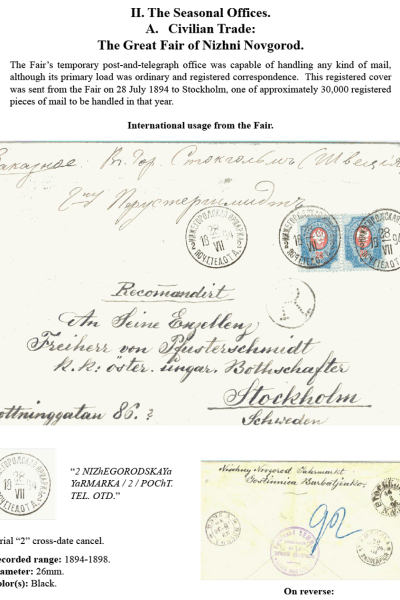 II. The Seasonal Offices.
A. Civilian Trade:
The Great Fair of Nizhni Novgorod.
The Fair's temporary post-and-telegraph office was capable of handling any kind of mail,
although its primary load was ordinary and registered correspondence. This registered cover
was sent from the Fair on 28 July 1894 to Stockholm, one of approximately 30,000 registered
pieces of mail to be handled in that year.
International usage from the Fair.
Заказное. Въ Гор. Стокгольмъ (Швеція
НИЖЕГОРОДСКАЯ ЯРМАРКА
28
18 94
VII
2 ПОЧ.ТЕЛ.ОТД.
Recomandirt
An Seine Exzellenz
Freiherr von Pfusterschmidt
k. k: öster. ungar. Bothschafter
Stockholm
ottninggatan 86. 2
Schweden
28
18 94
VII
"2 NIZhEGORODSKAYa
YaRMARKA / 2 / POChT.
TEL. OTD."
rial "2" cross-date cancel.
ecorded range: 1894-1898.
ameter: 26mm.
olor(s): Black.
Nischny Nowgorod Jahrmarkt
92
On reverse: